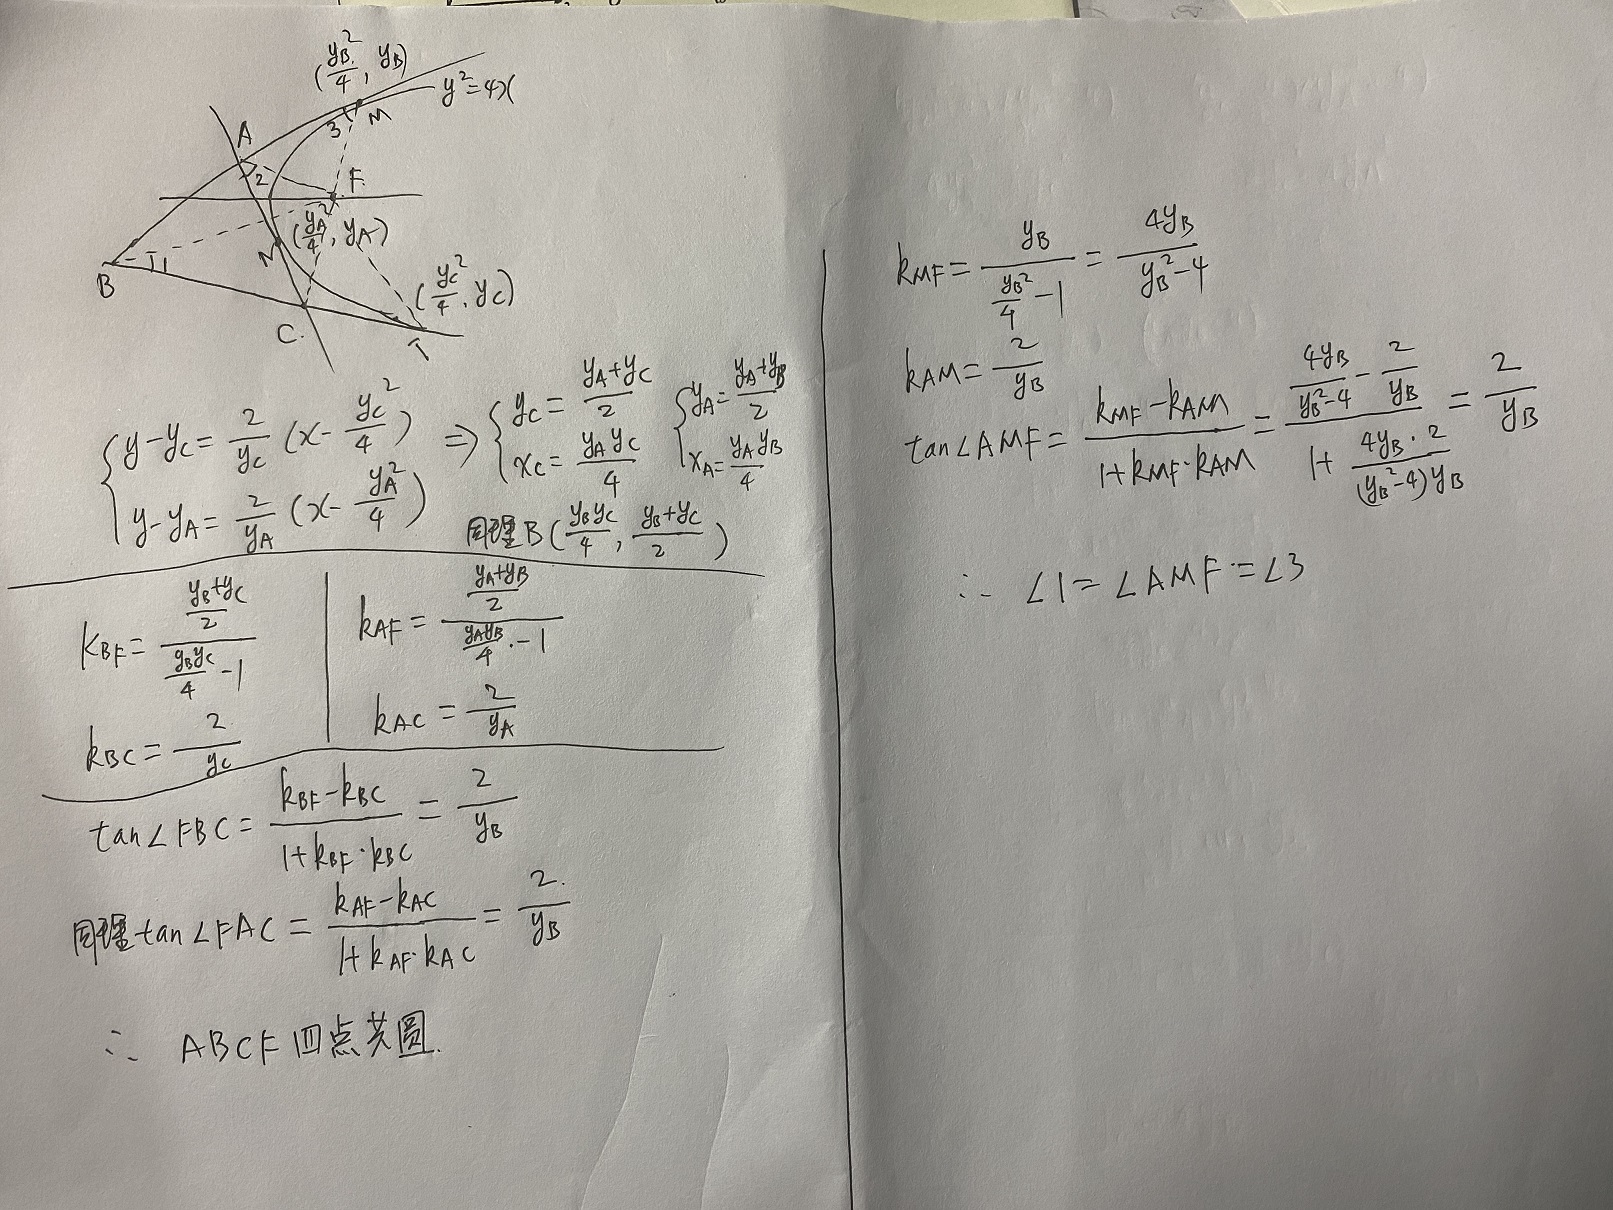 (y_B²/4, y_B)
y²=4x
A
3
M
2
F
(y_A²/4, y_A)
N
1
B
(y_C²/4, y_C)
C
T
{ y-y_C = 2/y_C (x - y_C²/4)
y-y_A = 2/y_A (x - y_A²/4)
⇒ { y_C = (y_A+y_C)/2
x_C = y_A y_C/4
{ y_A = (y_A+y_B)/2
x_A = y_A y_B/4
同理B(y_B y_C/4, (y_B+y_C)/2)
k_BF = ((y_B+y_C)/2)/(y_B y_C/4 - 1)
k_BC = 2/y_C
k_AF = ((y_A+y_B)/2)/(y_A y_B/4 - 1)
k_AC = 2/y_A
tan∠FBC = (k_BF - k_BC)/(1+k_BF·k_BC) = 2/y_B
同理tan∠FAC = (k_AF - k_AC)/(1+k_AF·k_AC) = 2/y_B
∴ ABCF四点共圆.
k_MF = y_B/(y_B²/4 - 1) = 4y_B/(y_B²-4)
k_AM = 2/y_B
tan∠AMF = (k_MF - k_AM)/(1+k_MF·k_AM) = (4y_B/(y_B²-4) - 2/y_B)/(1+ 4y_B·2/((y_B²-4)y_B)) = 2/y_B
∴ ∠1=∠AMF=∠3